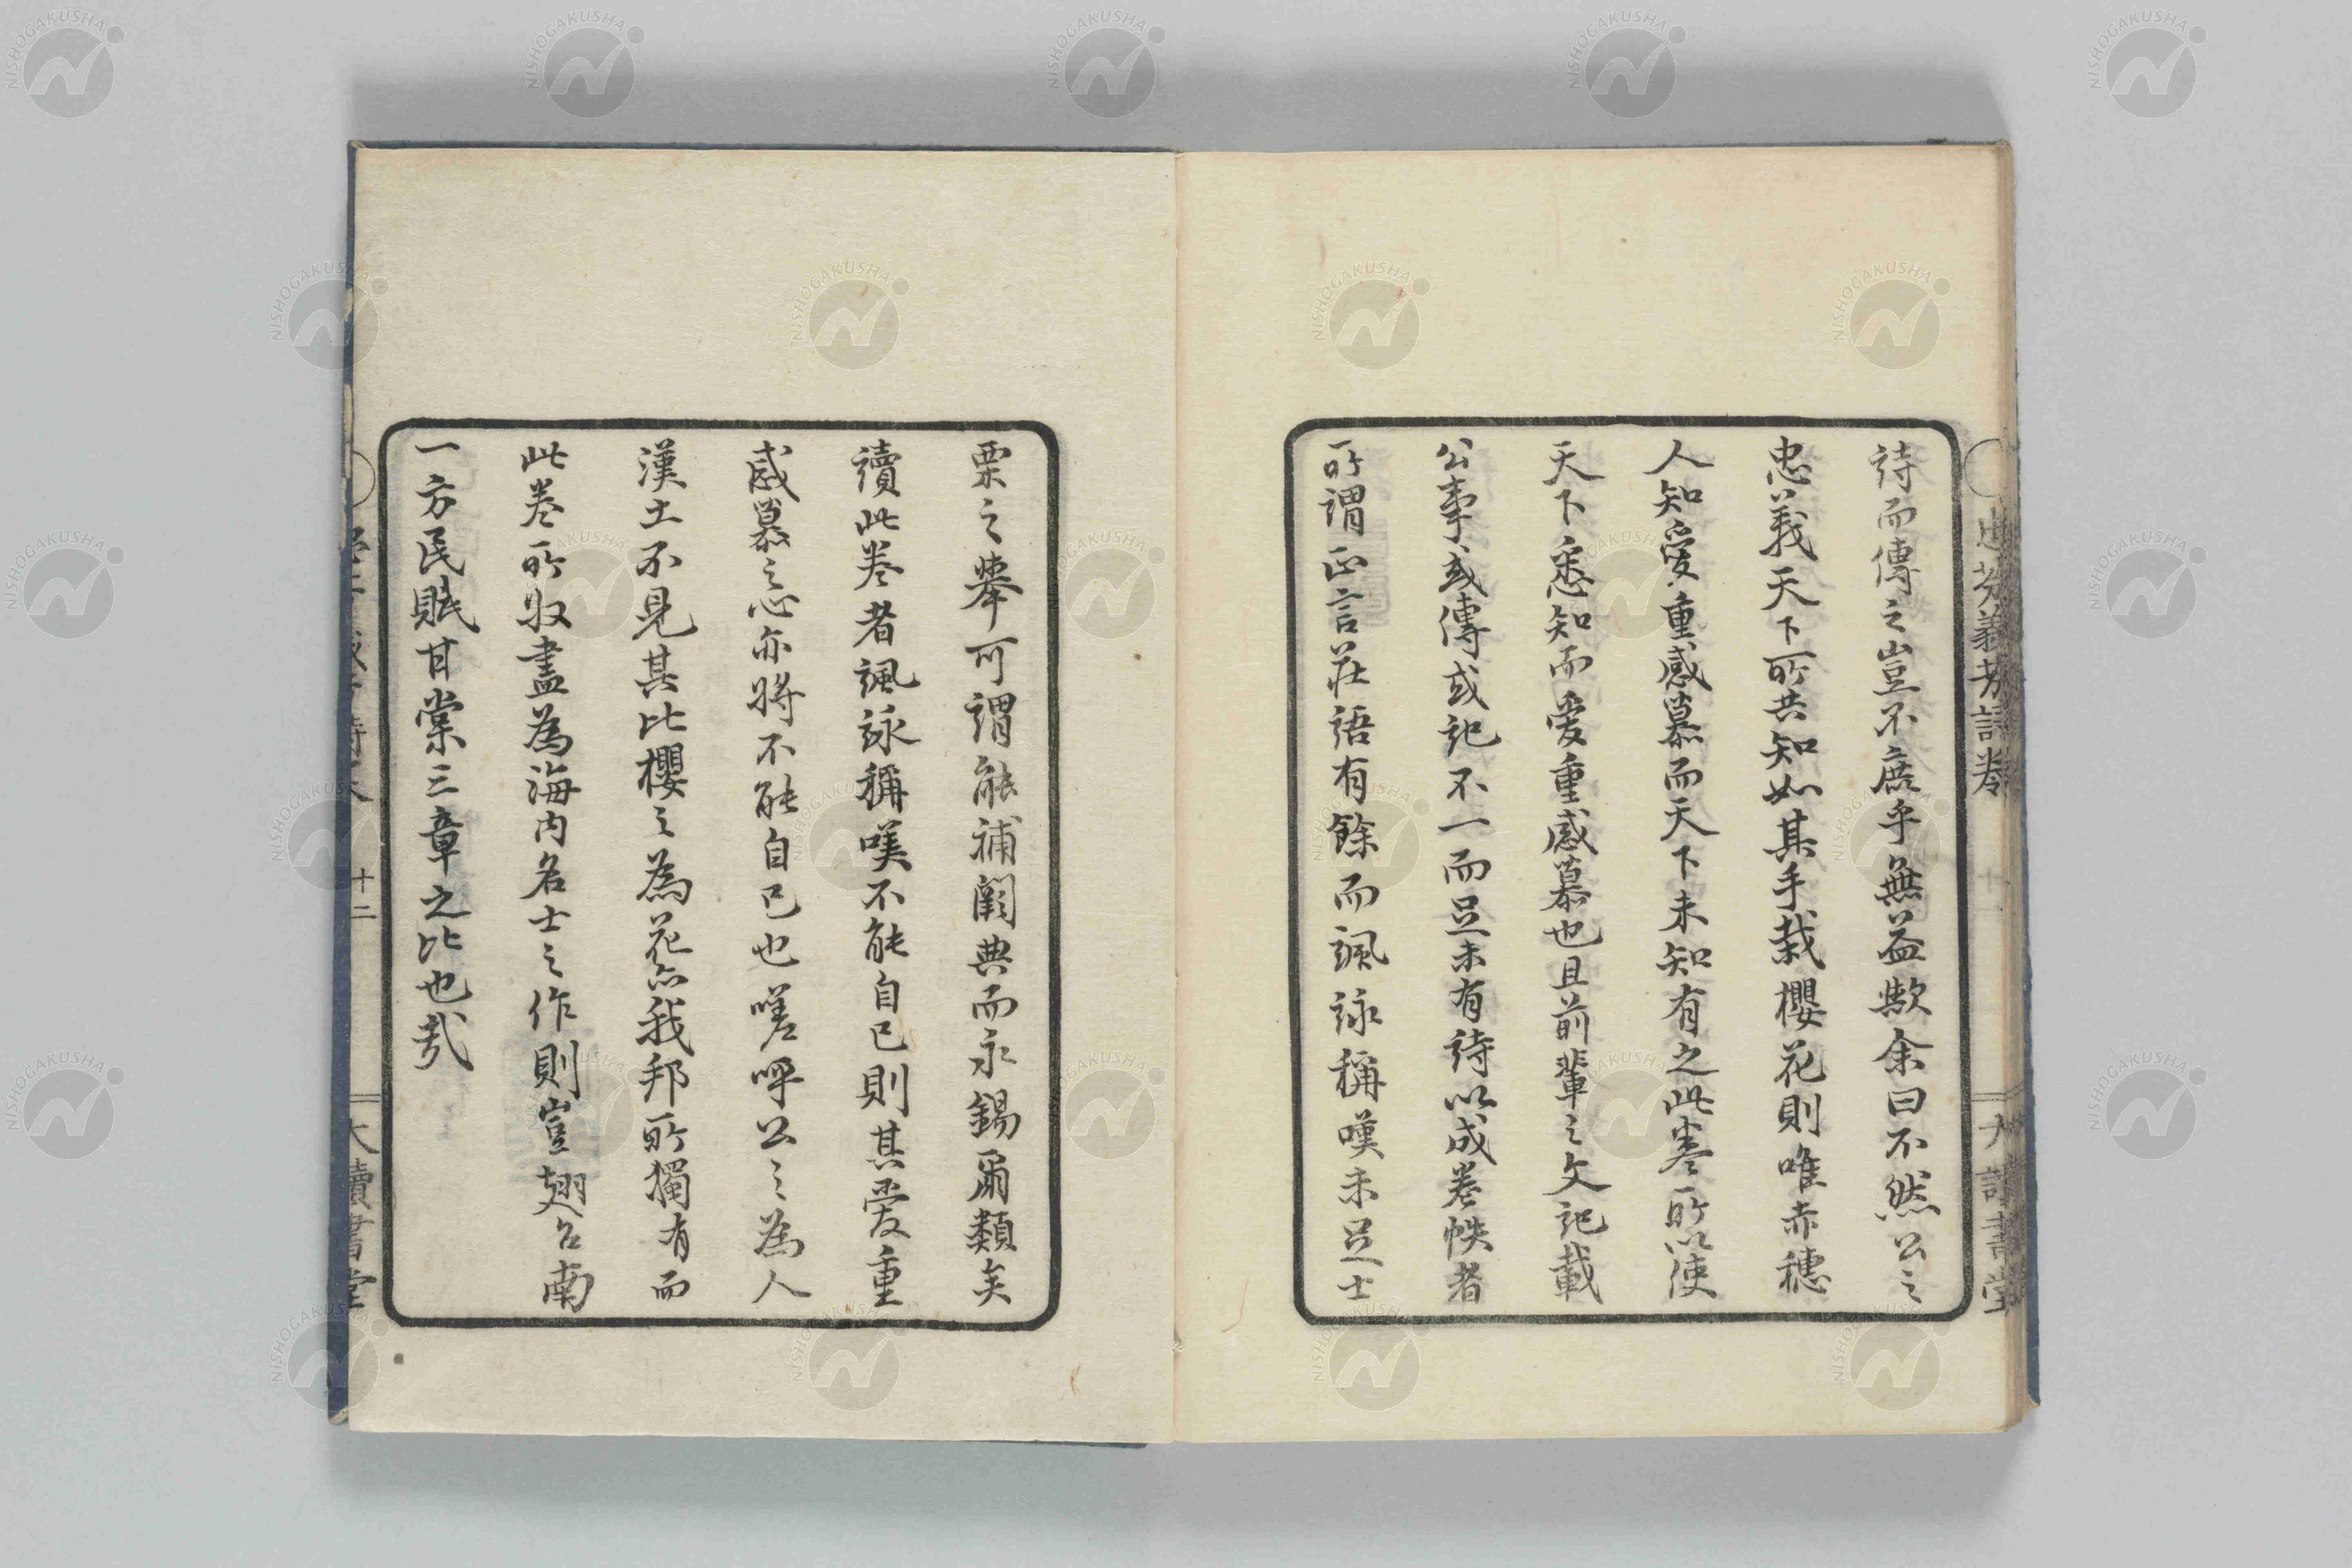 詩而傳之豈不庶乎無益歟余曰不然公之
忠義天下所共知如其手栽櫻花則唯赤穗
人知愛重感慕而天下未知有之此卷所以使
天下悉知而愛重感慕也且前輩之文記載
公事或傳或記不一而足未有詩以成卷帙者
所謂正言莊語有餘而諷詠稱嘆未足士
栗之舉可謂能補闕典而永錫爾類矣
讀此卷者諷詠稱嘆不能自已則其愛重
感慕之心亦將不能自已也嗟呼公之為人
漢土不見其比櫻之為花亦我邦所獨有而
此卷所収盡為海内名士之作則豈翅召南
一方民賦甘棠三章之比也哉
十二
大讀書堂
NISHOGAKUSHA